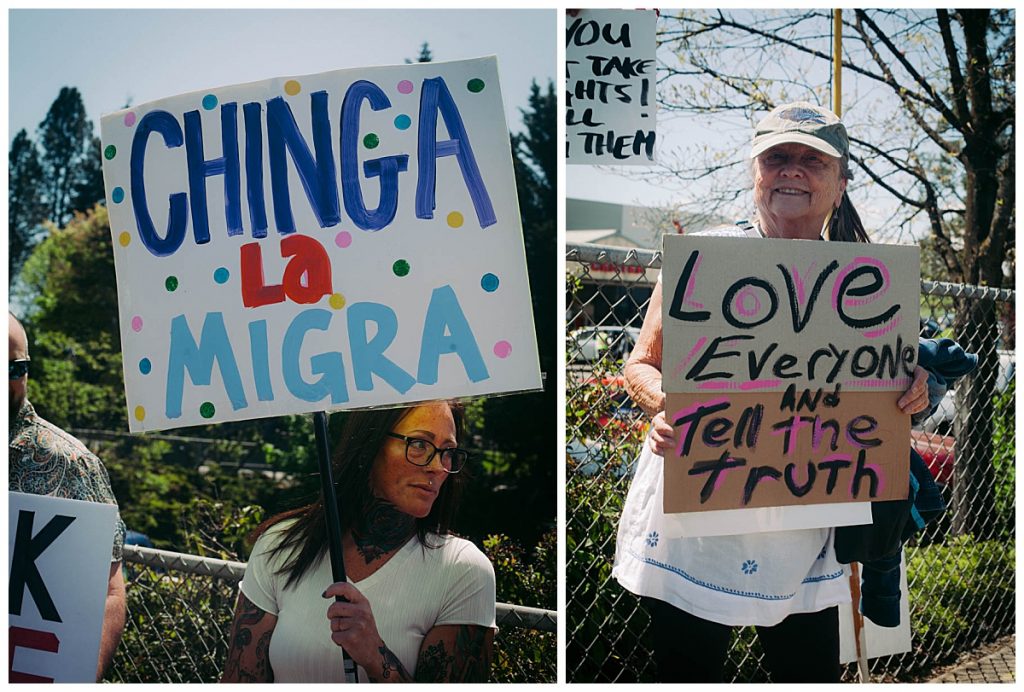 CHINGA
La
MIGRA
K
YOU
TAKE
THEM
Love
Everyone
AND
Tell The
Truth